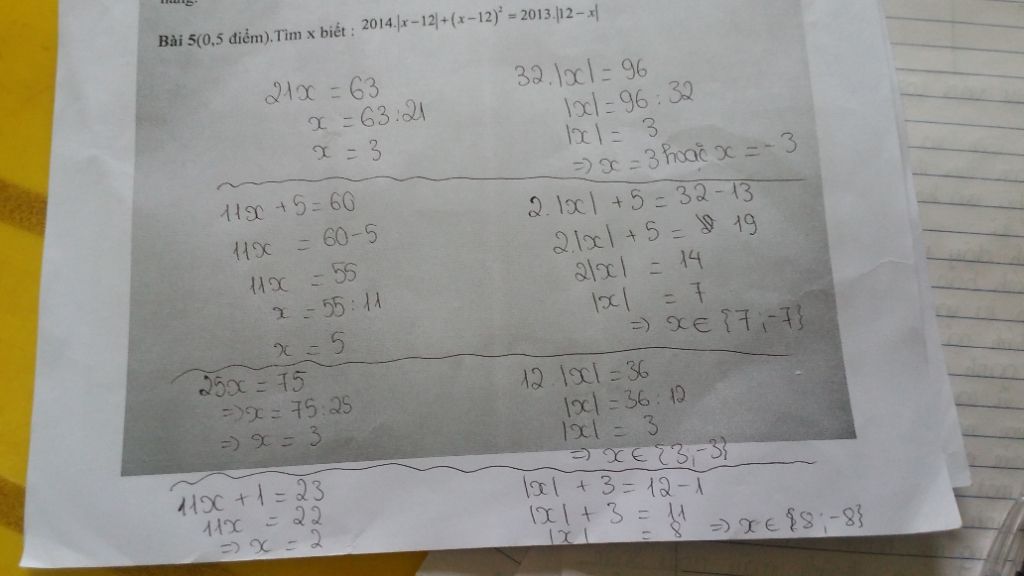 Bài 5(0,5 điểm).Tìm x biết : 2014.|x−12|+(x−12)² = 2013.|12−x|
21x = 63
x = 63:21
x = 3
32.|x| = 96
|x| = 96 : 32
|x| = 3
=> x = 3 hoặc x = -3
11x + 5 = 60
11x = 60-5
11x = 55
x = 55:11
x = 5
2.|x| + 5 = 32-13
2|x| + 5 = 19
2|x| = 14
|x| = 7
=> x ∈ {7;-7}
25x = 75
=> x = 75:25
=> x = 3
12.|x| = 36
|x| = 36 : 12
|x| = 3
=> x ∈ {3;-3}
11x + 1 = 23
11x = 22
=> x = 2
|x| + 3 = 12-1
|x| + 3 = 11
|x| = 8 => x ∈ {8;-8}